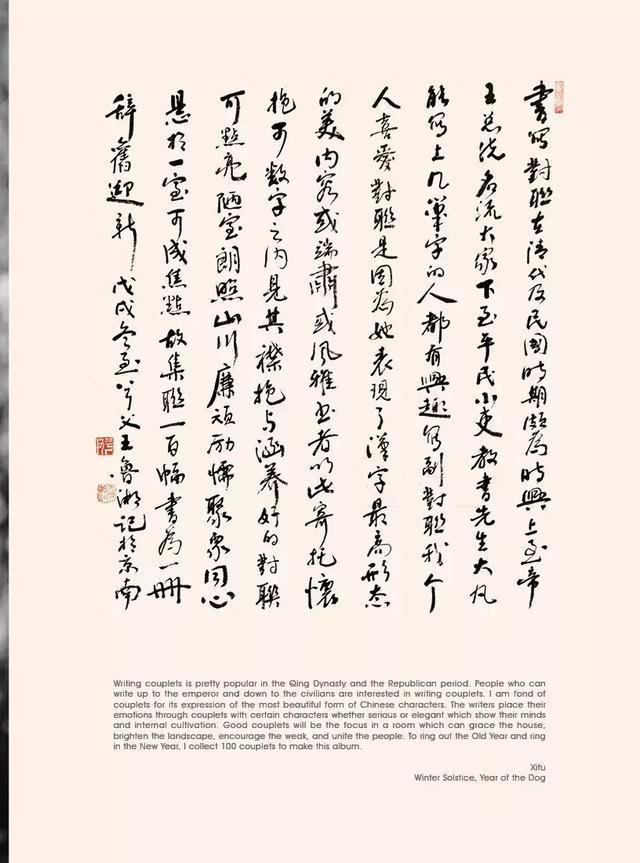 書寫對聯在清代及民國時期頗為時興上至帝
王总统名流大家下至平民小吏教書先生大凡
能寫上几筆字的人都有興趣寫副對聯我个
人喜愛對聯是因為她表現了漢字最高形态
的美内容或端肅或風雅书者以此寄托懷
抱可数字之内見其襟抱与涵养好的對聯
可點亮陋室朗照山川廉頑励懦聚眾同心
悬於一室可成焦點故集聯一百幅書為一冊
辭舊迎新戊戌冬至兮父王魯湘記於京南
Writing couplets is pretty popular in the Qing Dynasty and the Republican period. People who can
write up to the emperor and down to the civilians are interested in writing couplets. I am fond of
couplets for its expression of the most beautiful form of Chinese characters. The writers place their
emotions through couplets with certain characters whether serious or elegant which show their minds
and internal cultivation. Good couplets will be the focus in a room which can grace the house,
brighten the landscape, encourage the weak, and unite the people. To ring out the Old Year and ring
in the New Year, I collect 100 couplets to make this album.
Xifu
Winter Solstice, Year of the Dog